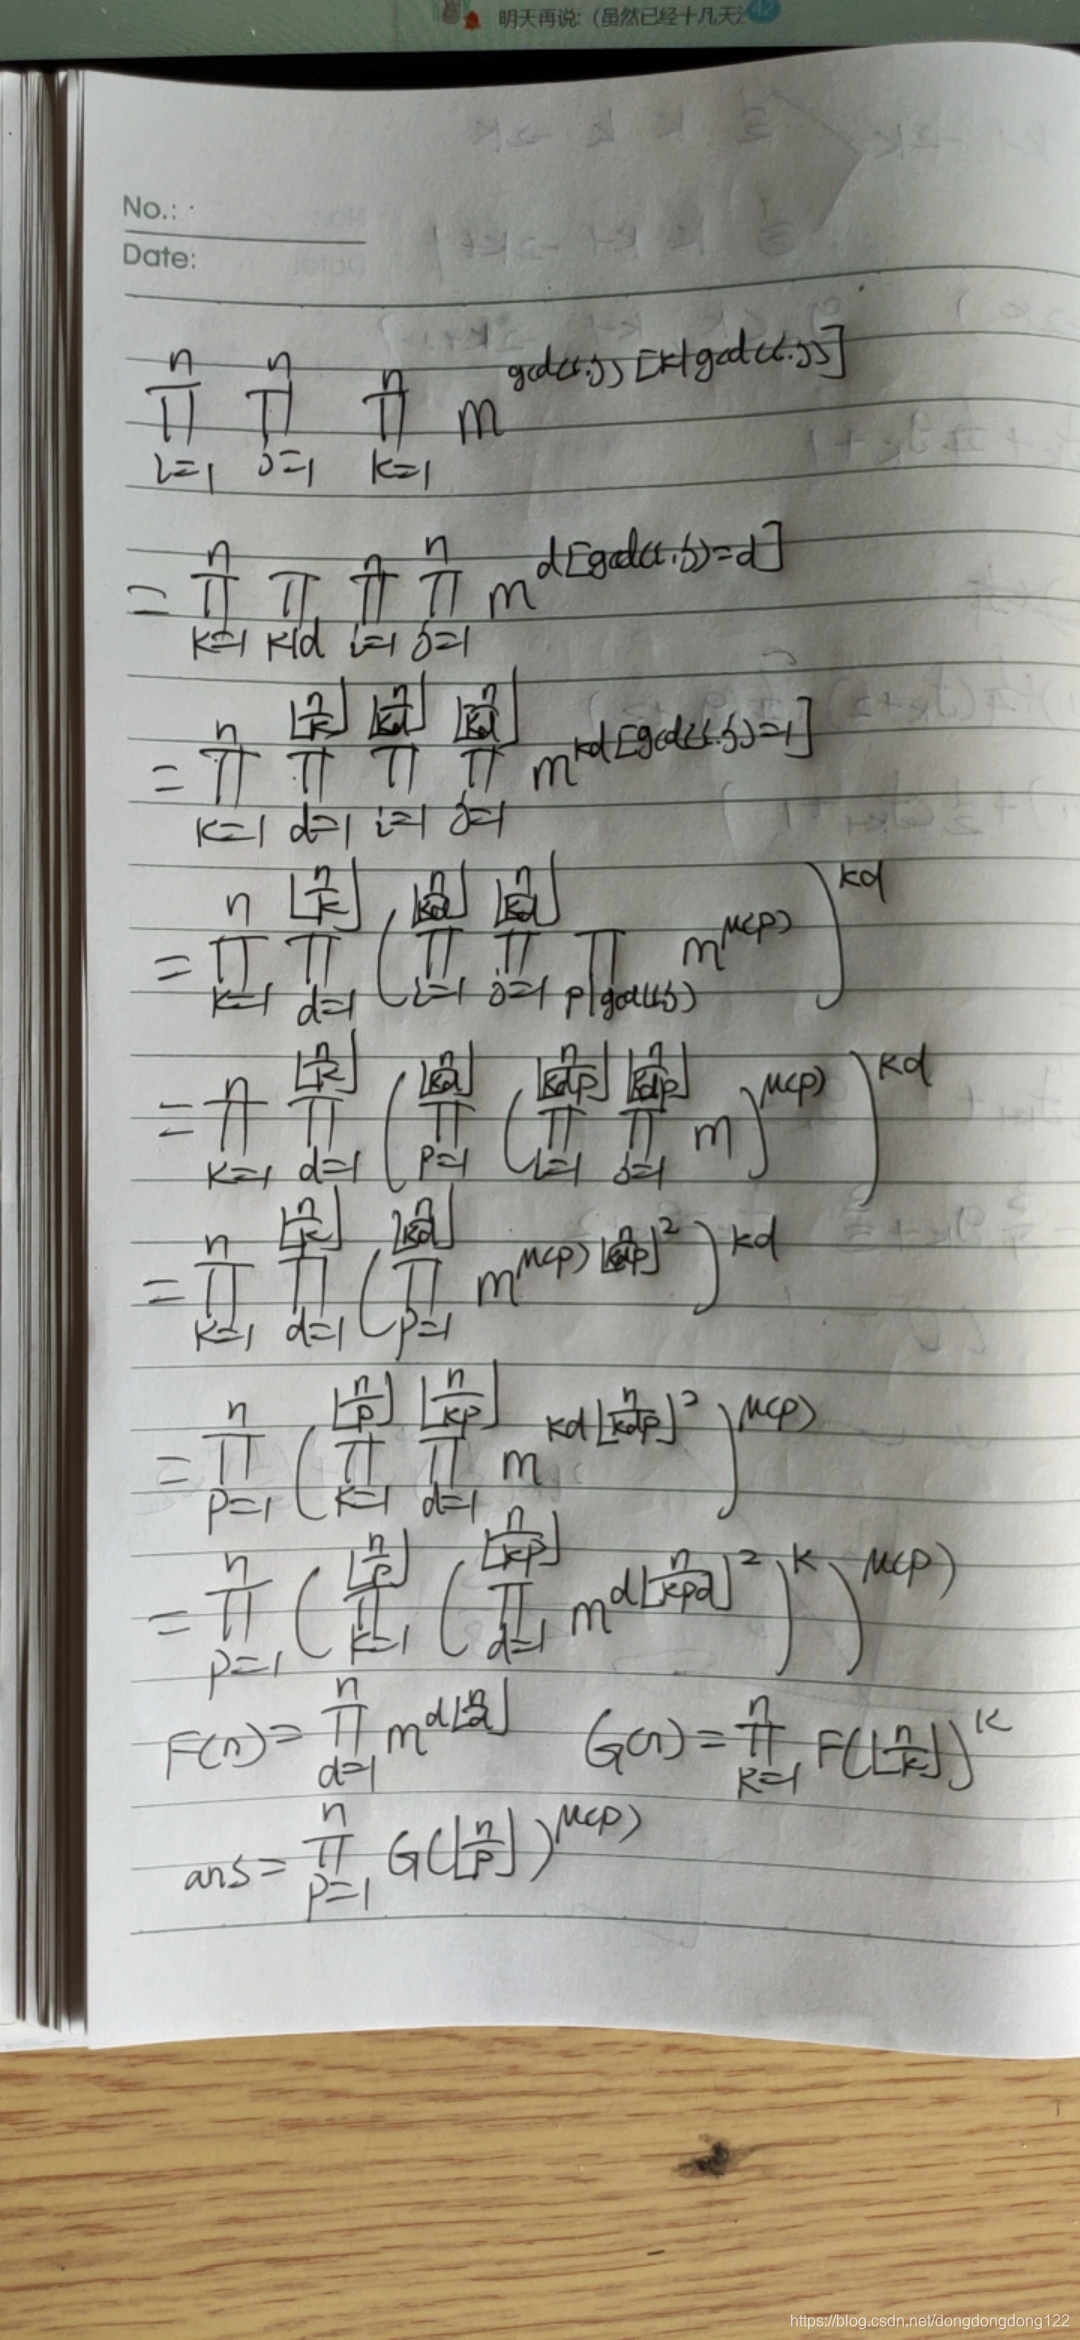 明天再说:(虽然已经十几天
42
No.:
Date:
\prod_{i=1}^{n} \prod_{j=1}^{n} \prod_{k=1}^{n} m^{gcd(i,j)[k|gcd(i,j)]}
= \prod_{k=1}^{n} \prod_{k|d} \prod_{i=1}^{n} \prod_{j=1}^{n} m^{d[gcd(i,j)=d]}
= \prod_{k=1}^{n} \prod_{d=1}^{⌊\frac{n}{k}⌋} \prod_{i=1}^{⌊\frac{n}{kd}⌋} \prod_{j=1}^{⌊\frac{n}{kd}⌋} m^{kd[gcd(i,j)=1]}
= \prod_{k=1}^{n} \prod_{d=1}^{⌊\frac{n}{k}⌋} ( \prod_{i=1}^{⌊\frac{n}{kd}⌋} \prod_{j=1}^{⌊\frac{n}{kd}⌋} \prod_{p|gcd(i,j)} m^{μ(p)} )^{kd}
= \prod_{k=1}^{n} \prod_{d=1}^{⌊\frac{n}{k}⌋} ( \prod_{p=1}^{⌊\frac{n}{kd}⌋} ( \prod_{i=1}^{⌊\frac{n}{kdp}⌋} \prod_{j=1}^{⌊\frac{n}{kdp}⌋} m )^{μ(p)} )^{kd}
= \prod_{k=1}^{n} \prod_{d=1}^{⌊\frac{n}{k}⌋} ( \prod_{p=1}^{⌊\frac{n}{kd}⌋} m^{μ(p)⌊\frac{n}{kdp}⌋^2} )^{kd}
= \prod_{p=1}^{n} ( \prod_{k=1}^{⌊\frac{n}{p}⌋} \prod_{d=1}^{⌊\frac{n}{kp}⌋} m^{kd⌊\frac{n}{kdp}⌋^2} )^{μ(p)}
= \prod_{p=1}^{n} ( \prod_{k=1}^{⌊\frac{n}{p}⌋} ( \prod_{d=1}^{⌊\frac{n}{kp}⌋} m^{d⌊\frac{n}{kpd}⌋^2} )^{k} )^{μ(p)}
F(n) = \prod_{d=1}^{n} m^{d⌊\frac{n}{d}⌋} G(n) = \prod_{k=1}^{n} F(⌊\frac{n}{k}⌋)^{k}
ans = \prod_{p=1}^{n} G(⌊\frac{n}{p}⌋)^{μ(p)}
https://blog.csdn.net/dongdongdong122